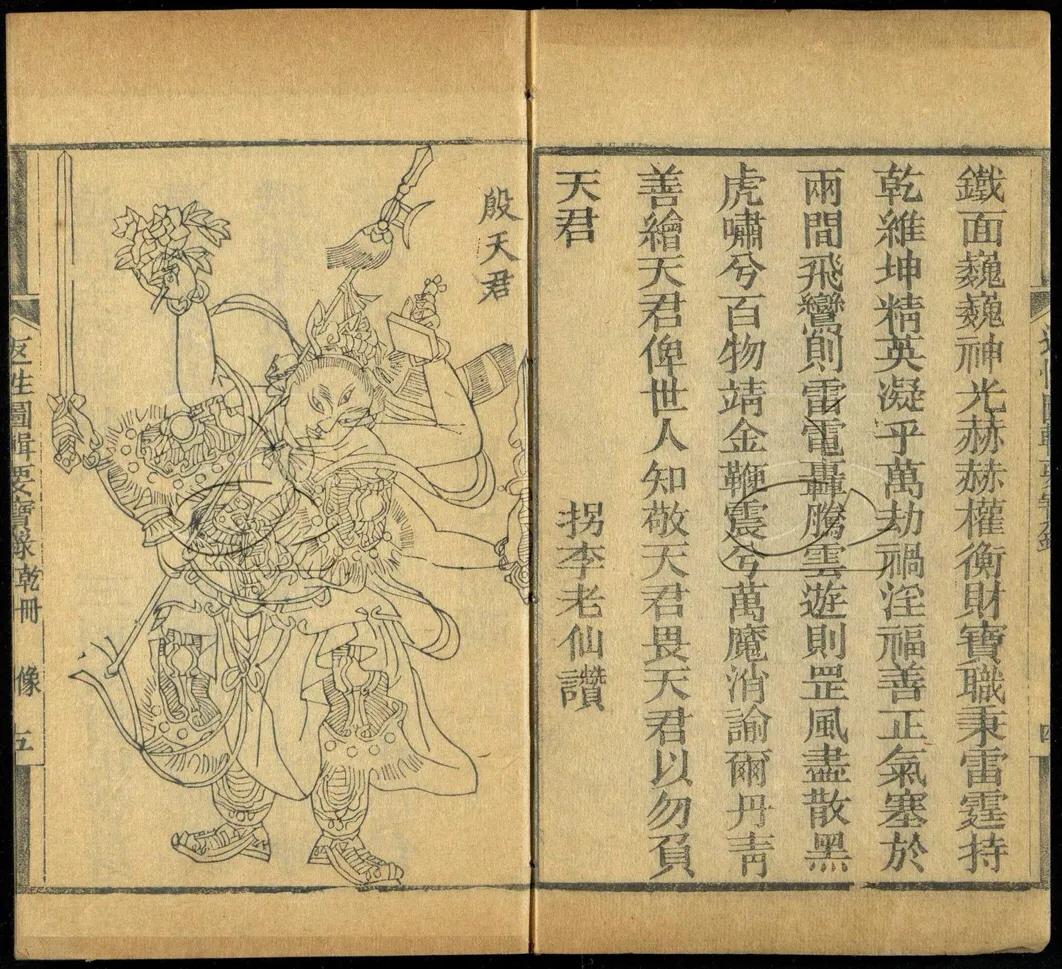 鐵面巍巍神光赫赫權衡財寶職秉雷霆持
乾維坤精英凝乎萬劫禍淫福善正氣塞於
兩間飛鸞則雷電轟騰雲遊則罡風盡散黑
虎嘯兮百物靖金鞭震兮萬魔消諭爾丹青
善繪天君俾世人知敬天君畏天君以勿負
天君
拐李老仙讚
四
殷天君
返性圖輯要寶錄乾冊
像
五